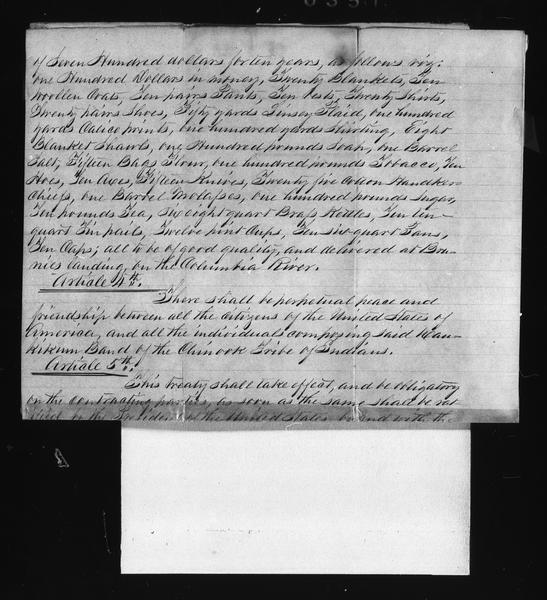 of Seven Hundred dollars for ten years, as follows viz:
One Hundred Dollars in money, Twenty Blankets, Ten
woollen Coats, Ten pairs Pants, Ten Vests, Twenty Shirts,
Twenty pairs Shoes, Fifty yards Linsey Plaid, one hundred
yards Calico prints, one hundred yards shirting, Eight
Blanket Shawls, one Hundred pounds Soap, one Barrel
Salt, Fifteen Bags Flour, one hundred pounds Tobacco, Ten
Hoes, Ten Axes, Fifteen Knives, Twenty five Cotton Handker-
chiefs, one Barrel Molasses, one hundred pounds Sugar,
Ten pounds Tea, six eight quart Brass Kettles, Ten ten-
quart Tin pails, Twelve pint Cups, Ten six quart Pans,
Ten Caps; all to be of good quality, and delivered at Bru-
nies landing, on the Columbia River.
Article 4th.
There shall be perpetual peace and
friendship between all the citizens of the United States of
America, and all the individuals composing said Wau-
kikum Band of the Chinook Tribe of Indians.
Article 5th.
This treaty shall take effect, and be obligatory
on the contracting parties, as soon as the same shall be rat
ified by the President of the United States, by and with the